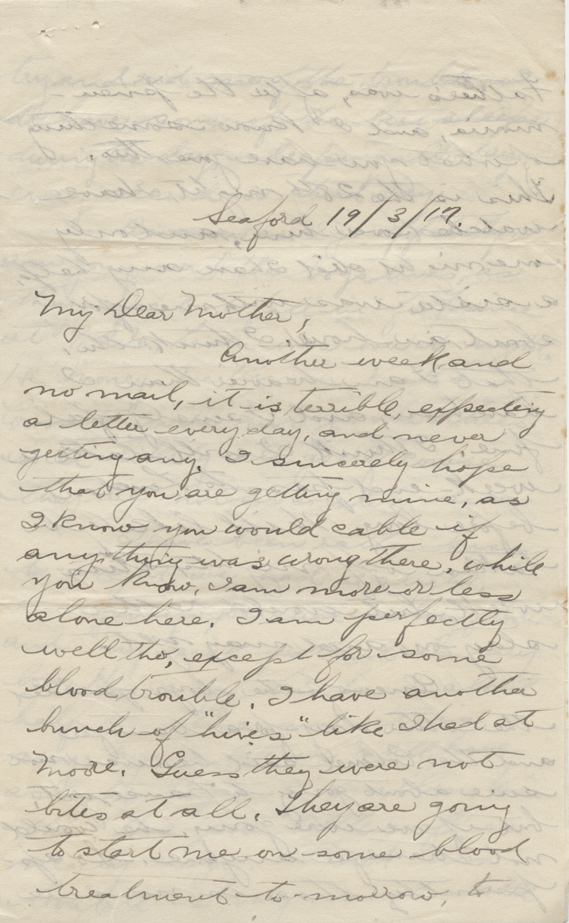 Seaford 19/3/17.
My Dear Mother,
Another week and
no mail, it is terrible, expecting
a letter every day, and never
getting any. I sincerely hope
that you are getting mine, as
I know you would cable if
anything was wrong there, while
you know, I am more or less
alone here. I am perfectly
well tho, except for some
blood trouble. I have another
bunch of "hives" like I had at
Moore. Guess they were not
bites at all. They are going
to start me on some blood
treatment to-morrow, to